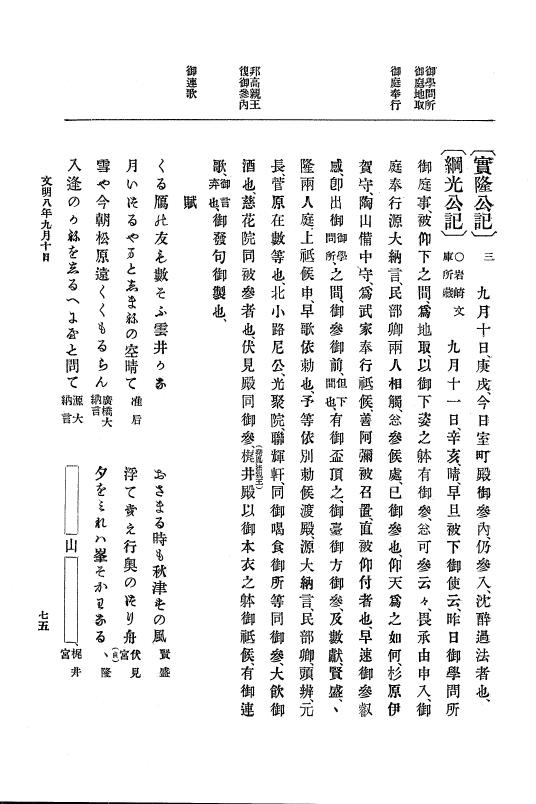 御學問所
御庭地取
御庭奉行
邦高親王
復御參內
御連歌
〔實隆公記〕 三 九月十日、庚戌、今日室町殿御參內、仍參入沈醉過法者也、
〔綱光公記〕 ○岩崎文庫所藏 九月十一日、辛亥、晴、早旦被下御使云、昨日御學問所
御庭事被仰下之間、爲地取以御下姿之躰有御參、忩可參云々、畏承由申入、御
庭奉行源大納言、民部卿兩人相觸、忩參候處、已御參也、仰天爲之如何、杉原伊
賀守、陶山備中守、爲武家奉行祗候、善阿彌被召置、直被仰付者也、早速御參叡
感、卽出御御學問所、之間、御參御前、但下間也、有御盃頂之、御臺御方御參、及數獻、賢盛、ヽ
隆兩人庭上祗候、申早歌依勅也、予等依別勅候渡殿、源大納言、民部卿、頭辨、元
長、菅原在數等也、北小路尼公、光聚院、聯輝軒、同御喝食御所等同御參、大飮御
酒也、慈花院同被參者也、伏見殿同御參、梶井殿以御本衣之躰御祗候、有御連
歌、御言弃也、御發句御製也、
賦
くる鴈の友も數そふ雲井かな
月いつるやまとしまねの空晴て 准后
雪や今朝松原遠くくもるらん 廣橋大納言
入逢のかねをしるへによと問て 源大納言
おさまる時も秋津はの風 賢盛
浮て見え行奧のつり舟 伏見宮
夕をみれハ峯そかすめる ヽ隆
山 梶井宮
文明八年九月十日
七五